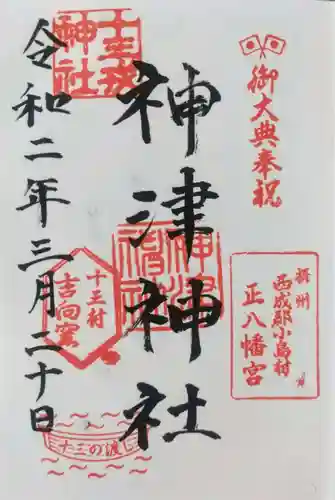 御大典奉祝
摂州
西成郡小島村
正八幡宮
神津神社
神津神社
十三戎
神社
十三村
吉向窯
十三の渡し
令和二年三月二十日